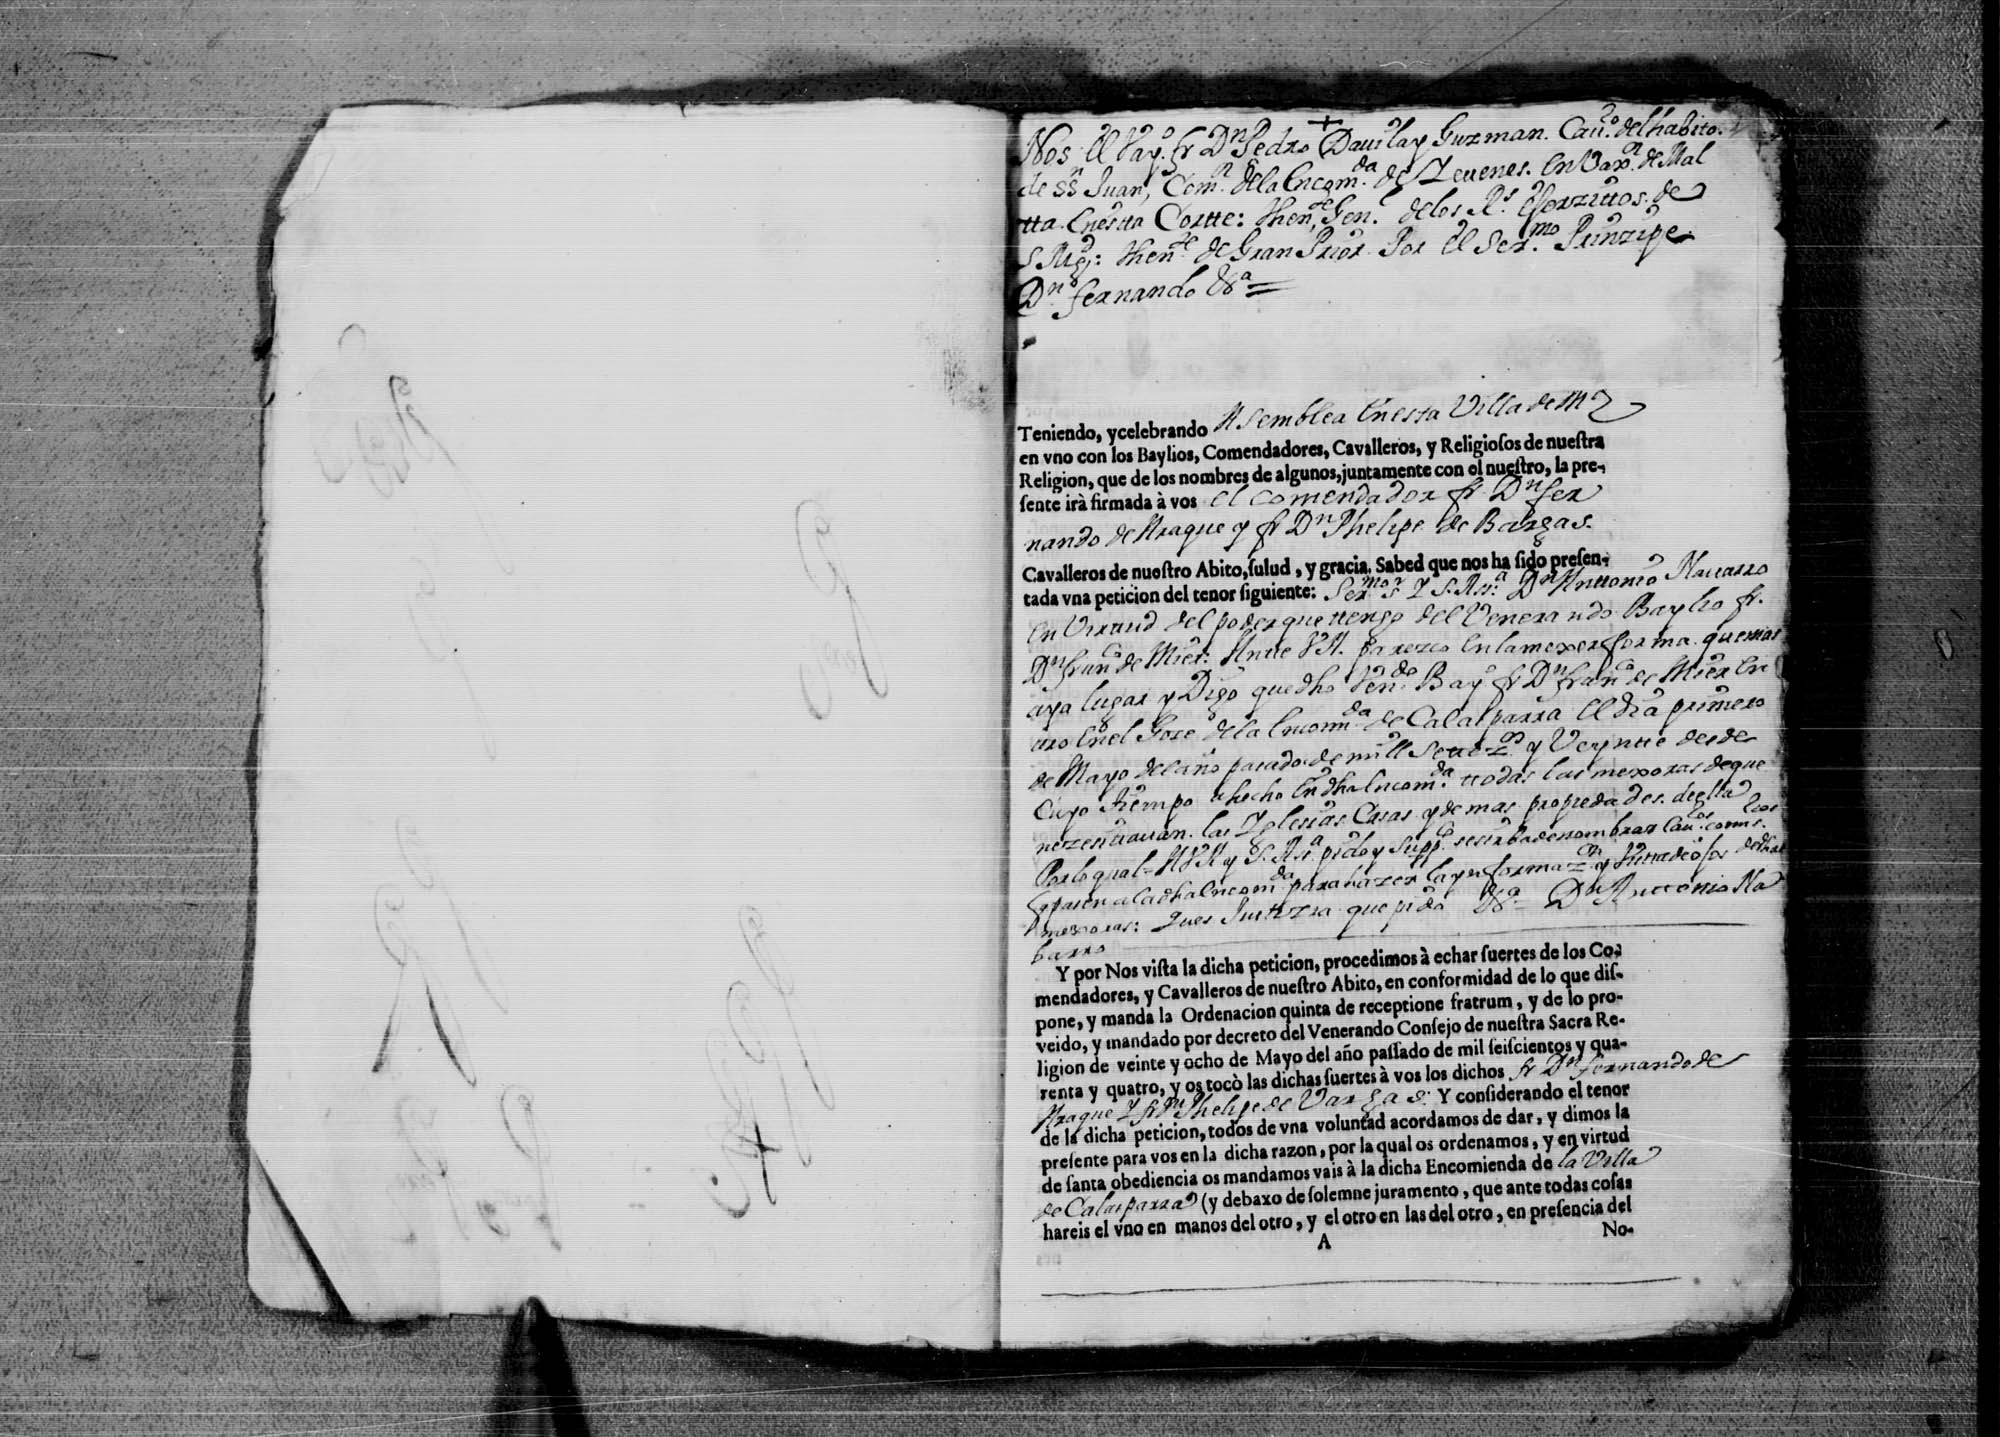 Nos el Vay.º fr Dn Pedro Davila y Guzman. Cauº. del habito.
de Sn Juan, Comr. de la Encomda de Zeuenes. En Vaxn. de Mal
tta. En esta Cortte: then.te Gen.l de los Rs Exerzittos. de
S Mgd: thente de Gran Prior Por el Sermo Prinzipe
Dn fernando &a =
Teniendo, ycelebrando Asemblea En esta Villa de Md
en vno con los Baylios, Comendadores, Cavalleros, y Religioſos de nueſtra
Religion, que de los nombres de algunos, juntamente con el nueſtro, la pre-
ſente irà firmada à vos el comendador fr Dn fer
nando de Araque y fr Dn Phelipe de Bargas.
Cavalleros de nueſtro Abito, ſalud, y gracia. Sabed que nos ha ſido preſen-
tada vna peticion del tenor ſiguiente: Sermo Sr Y S. Asa. Dn Anttonio Nauarro
En Virtud del poder que ttengo del Venerando Baylio fr.
Dn franco de Mier: Ante V.A. parezco en la mexor forma que mas
aya lugar y Digo que dho Vendo Bayo fr Dn franco de Mier En
tro En el Goze de la Encomda de Calasparra el dia primero
de Mayo del año pasado de mill Settezos y Veyntte desde
Cuyo tiempo a hecho En dha Encomda ttodas las mexoras de que
nezesittauan. las Yglesias Casas y demas propiedades. de ella
Por lo qual = A V.A. y S. Asa pido y suppco se sirba de nombrar Cauos comis.
q pasen a la dha Encomda para hazer la ynformazon y
mexoras: Pues Justizia que pido &a Dn Anttonio Na
barro
Y por Nos viſta la dicha peticion, procedimos à echar ſuertes de los Co-
mendadores, y Cavalleros de nueſtro Abito, en conformidad de lo que diſ-
pone, y manda la Ordenacion quinta de receptione fratrum, y de lo pro-
veido, y mandado por decreto del Venerando Conſejo de nueſtra Sacra Re-
ligion de veinte y ocho de Mayo del año paſſado de mil ſeiſcientos y qua-
renta y quatro, y os tocò las dichas ſuertes à vos los dichos fr Dn fernando de
Araque Y fr Dn Phelipe de Vargas: Y conſiderando el tenor
de la dicha peticion, todos de vna voluntad acordamos de dar, y dimos la
preſente para vos en la dicha razon, por la qual os ordenamos, y en virtud
de ſanta obediencia os mandamos vais à la dicha Encomienda de la Villa
de Calasparra (y debaxo de ſolemne juramento, que ante todas coſas
hareis el vno en manos del otro, y el otro en las del otro, en preſencia del
A No-